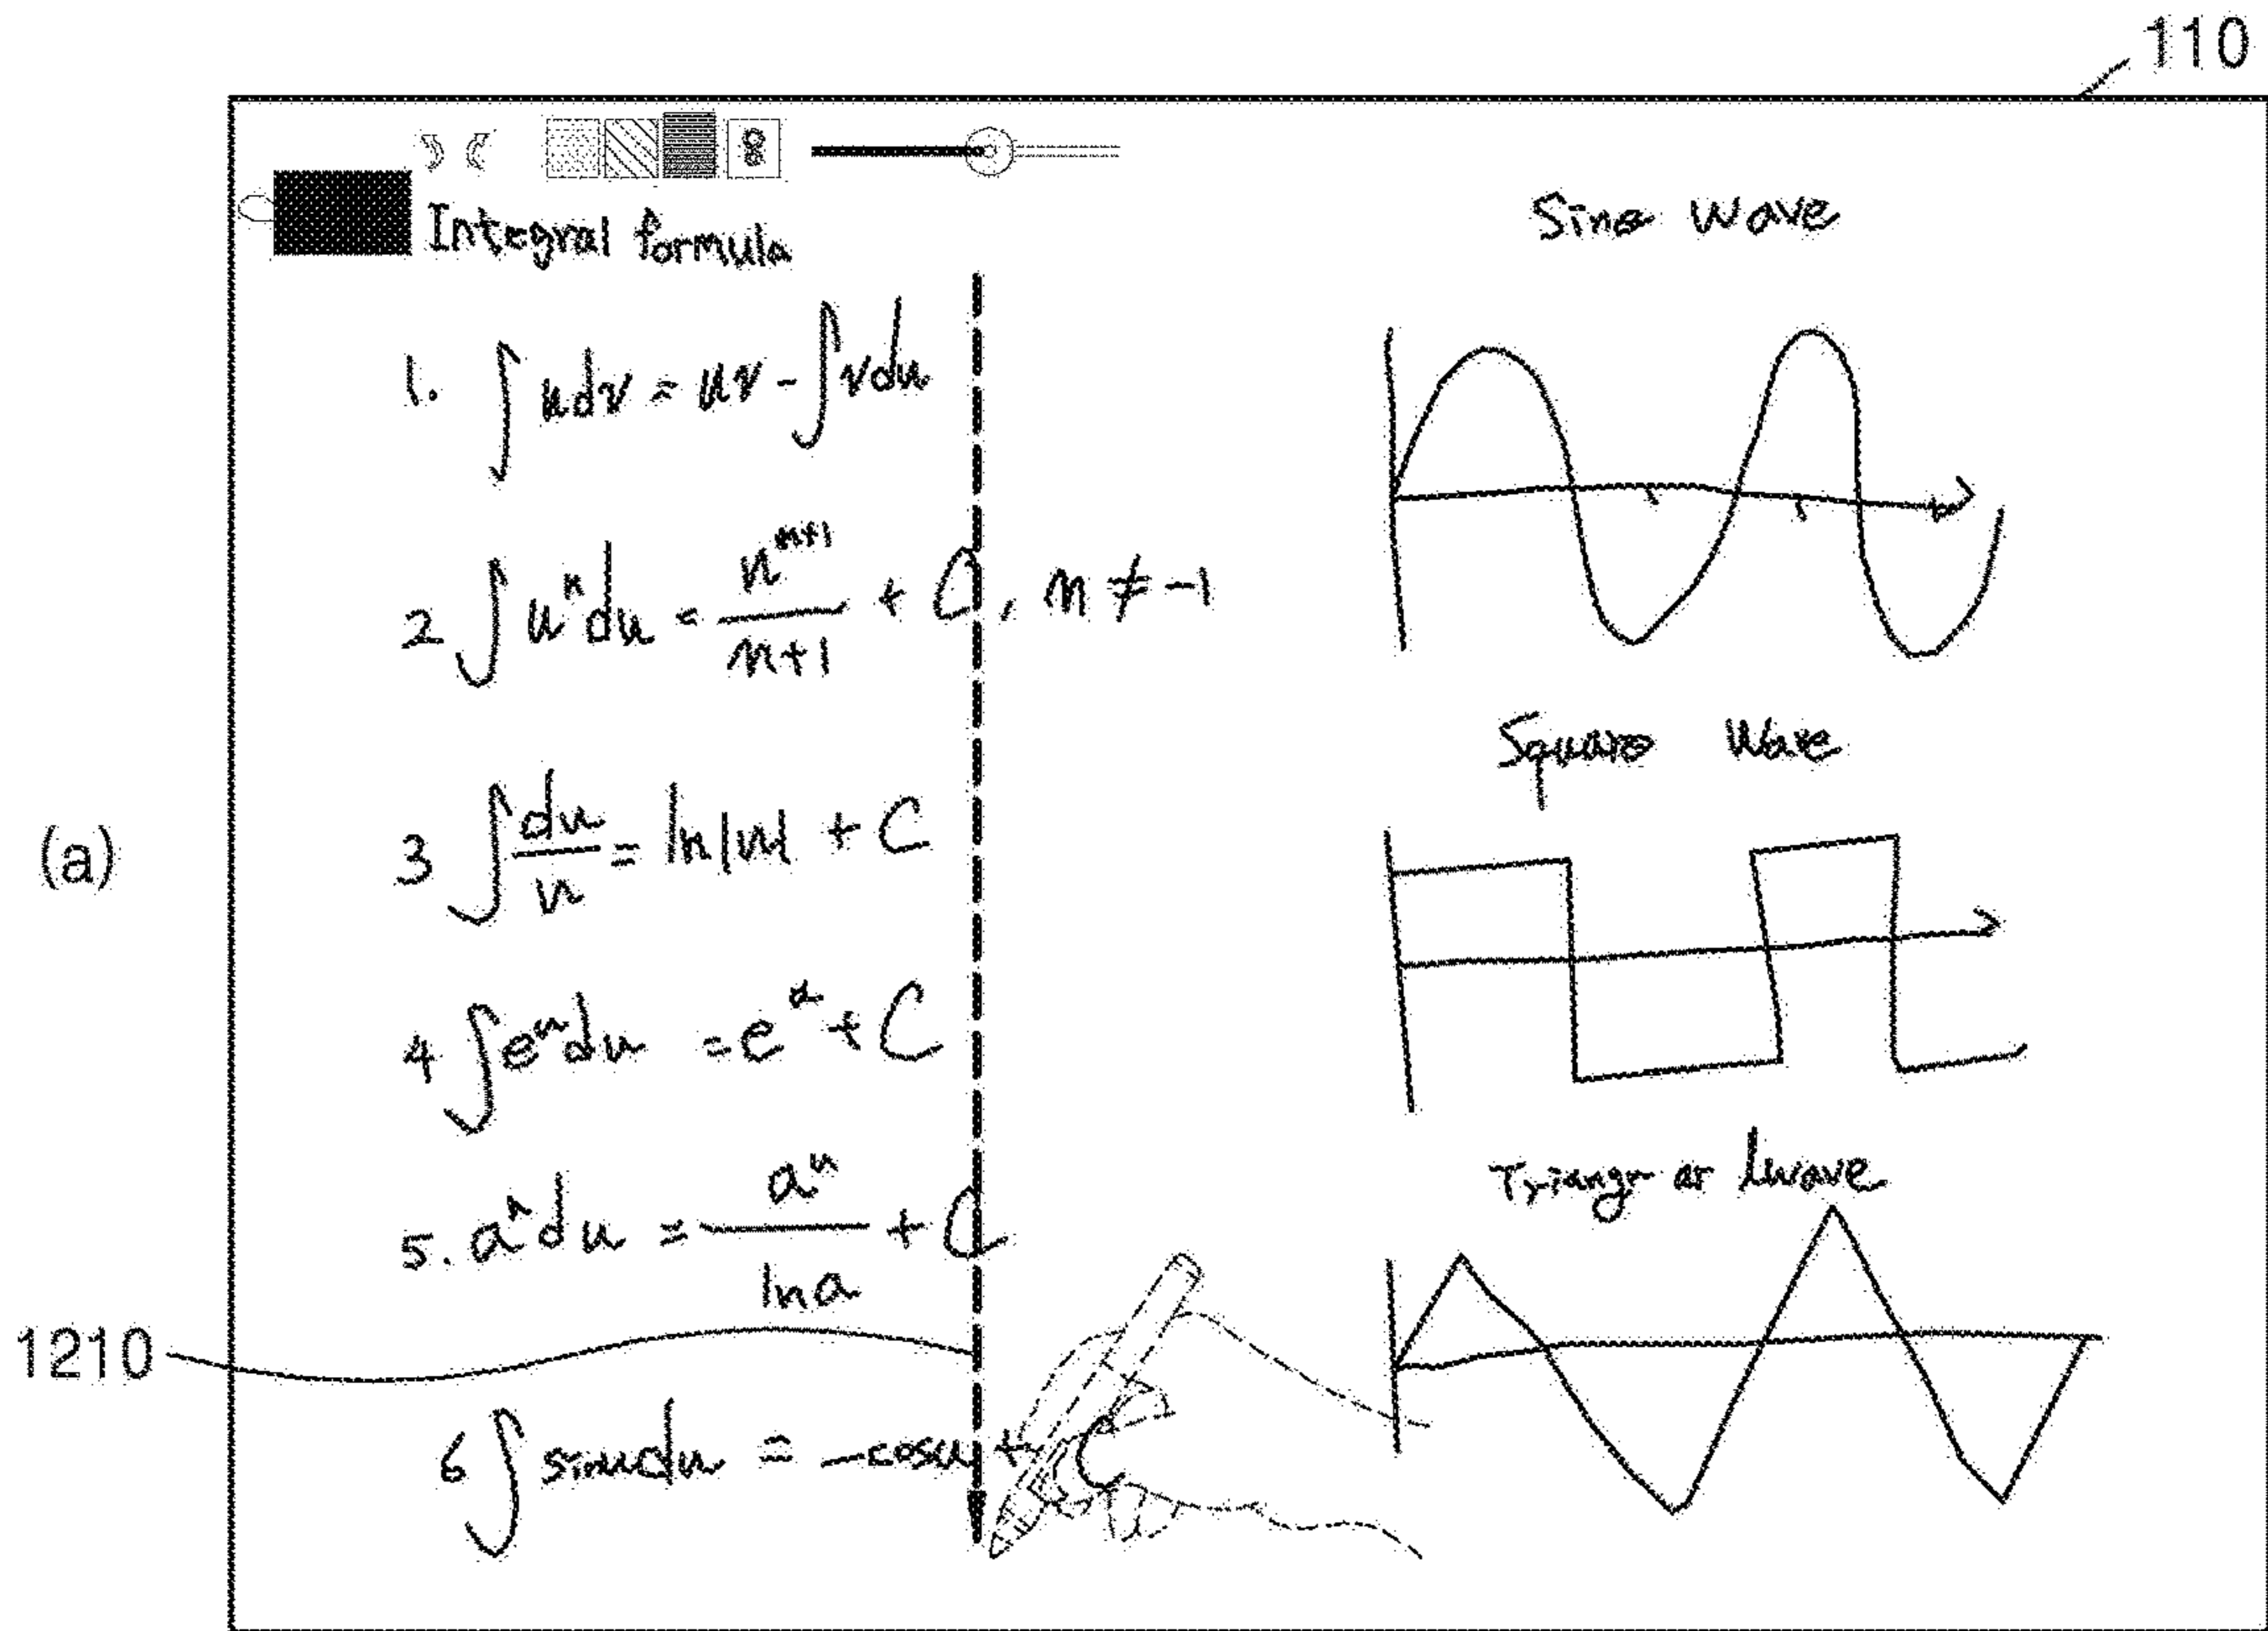 110
Integral formula
1. ∫ u dv = uv - ∫ v du
2 ∫ u^n du = u^{n+1}/n+1 + C, n ≠ -1
3 ∫ du/u = ln|u| + C
4 ∫ e^u du = e^u + C
5. a^u du = a^u/ln a + C
6 ∫ sin u du = -cos u + C
Sine Wave
Square Wave
wave
(a)
1210